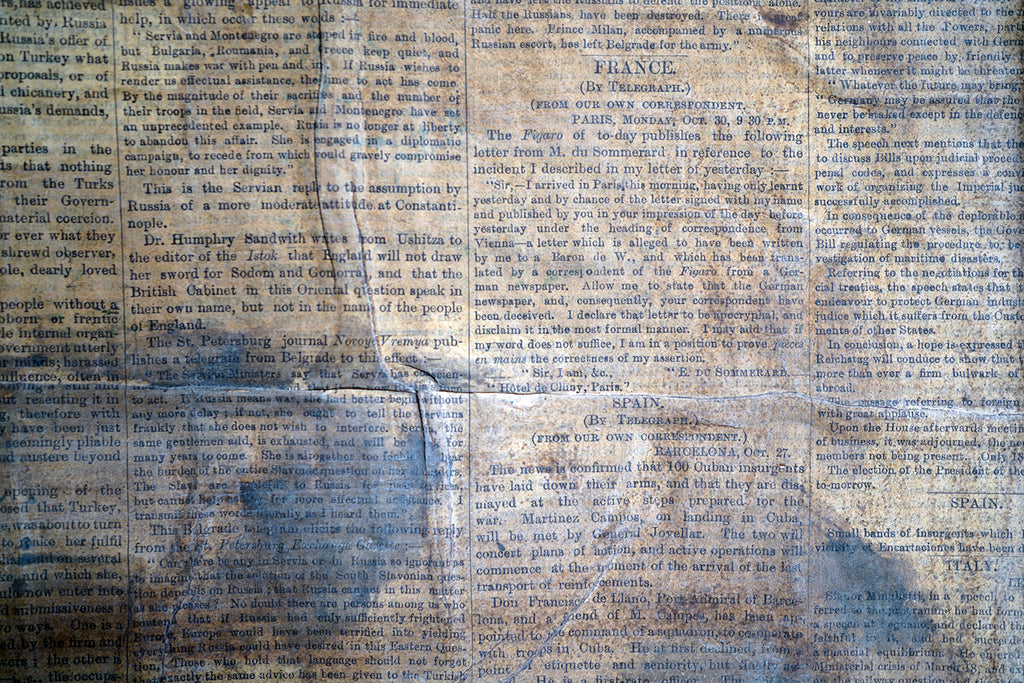 has achieved
nted by. Russia
Russia's offer of
on Turkey what
proposals, or of
l chicanery, and
ussia's demands,
parties in the
is that nothing
rom the Turks
their Govern-
material coercion.
or ever what they
shrewd observer,
ole, dearly loved
people without a
oborn or frantic
le internal organ-
overnment utterly
minds; harassed
influence, often in
ut resenting it in
g, therefore with
have been just
seemingly pliable
ad austere beyond
opening of the
osed that Turkey,
e, was about to turn
to make her fulfil
and on several
ke, and which she,
ould now enter into
submissiveness
wo ways. One is a
by the firm and
the other is
the occupa-
ishes a glowing appeal to Russia for immediate
help, in which occur these words :—
"Servia and Montenegro are steeped in fire and blood,
but Bulgaria, Roumania, and Greece keep quiet, and
Russia makes war with pen and ink. If Russia wishes to
render us effectual assistance, the time to act has come
By the magnitude of their sacrifices and the number of
their troops in the field, Servia and Montenegro have set
an unprecedented example. Russia is no longer at liberty
to abandon this affair. She is engaged in a diplomatic
campaign, to recede from which would gravely compromise
her honour and her dignity."
This is the Servian reply to the assumption by
Russia of a more moderate attitude at Constanti-
nople.
Dr. Humphry Sandwith writes from Ushitza to
the editor of the Istok that England will not draw
her sword for Sodom and Gomorra, and that the
British Cabinet in this Oriental question speak in
their own name, but not in the name of the people
of England.
The St. Petersburg journal Novoye Vremya pub-
lishes a telegram from Belgrade to this effect :—
"The Servian Ministers say that Servia has
to act. If Russia means war, she had better begin without
any more delay; if not, she ought to tell the Servians
frankly that she does not wish to interfere. Servia, the
same gentlemen add, is exhausted, and will be so for
many years to come. She is altogether too feeble for
the burden of the entire Slavonic question on her shoulders.
The Slavs are to Russia for past services,
but cannot help for more effectual assistance,
transmit these words and heard them."
This Belgrade telegram elicits the following reply
from the St. Petersburg Exchange Gazette :—
"Can there be any in Servia or in Russia so ignorant as
to imagine that the solution of the South Slavonian ques-
tion depends on Russia; that Russia can do in this matter
as she pleases? No doubt there are persons among us who
that if Russia had only sufficiently frightened
Europe, Europe would have been terrified into yielding
everything Russia could have desired in this Eastern Ques-
tion. Those who hold that language should not forget
exactly the same advice has been given to the Turkish
the Russians to defend the positions
Half the Russians have been destroyed. There is great
panic here. Prince Milan, accompanied by a numerous
Russian escort, has left Belgrade for the army."
FRANCE.
(By Telegraph.)
(FROM OUR OWN CORRESPONDENT.
PARIS, Monday, Oct. 30, 9 30 P.M.
The Figaro of to-day publishes the following
letter from M. du Sommerard in reference to the
incident I described in my letter of yesterday :—
"Sir,—I arrived in Paris this morning, having only learnt
yesterday and by chance of the letter signed with my name
and published by you in your impression of the day before
yesterday under the heading of correspondence from
Vienna—a letter which is alleged to have been written
by me to a Baron de W., and which has been trans-
lated by a correspondent of the Figaro from a Ger-
man newspaper. Allow me to state that the German
newspaper, and, consequently, your correspondent have
been deceived. I declare that letter to be apocryphal, and
disclaim it in the most formal manner. I may add that if
my word does not suffice, I am in a position to prove pièces
en mains the correctness of my assertion.
"Sir, I am, &c., "E. DU SOMMERARD.
"Hôtel de Cluny, Paris."
SPAIN.
(By Telegraph.)
(FROM OUR OWN CORRESPONDENT.)
BARCELONA, Oct. 27.
The news is confirmed that 100 Cuban insurgents
have laid down their arms, and that they are dis-
mayed at the active steps prepared for the
war. Martinez Campos, on landing in Cuba,
will be met by General Jovellar. The two will
concert plans of action, and active operations will
commence at the moment of the arrival of the last
transport of reinforcements.
Don Francisco de Llano, Port-Admiral of Barce-
lona, and a friend of M. Campos, has been ap-
pointed to the command of a squadron, to co-operate
with troops in Cuba. He at first declined, from
point etiquette and seniority, but finally
He is a first-rate officer. The
yours are invariably directed to the
relations with all the Powers, parti
his neighbours connected with Germ
and to preserve peace by friendly
latter whenever it might be threaten
Whatever the future may bring,
Germany may be assured that the
never be staked except in the defence
and interests."
The speech next mentions that the
to discuss Bills upon judicial proced
penal codes, and expresses a conv
work of organizing the Imperial ju
successfully accomplished.
In consequence of the deplorable
occurred to German vessels, the Gov
Bill regulating the procedure to be
vestigation of maritime disasters.
Referring to the negotiations for th
cial treaties, the speech states that
endeavour to protect German indust
judice which it suffers from the Custo
ments of other States.
In conclusion, a hope is expressed t
Reichstag will conduce to show that
more than ever a firm bulwark of
abroad.
The passage referring to foreign
with great applause.
Upon the House afterwards meetin
of business, it was adjourned, the ne
members not being present. Only 18
The election of the President of the
to-morrow.
SPAIN.
Small bands of insurgents which
Encartaciones have been d
ITALY.
Signor Minghetti, in a speech,
ferred to the programme he had form
a speech at Legnano, and declared tha
faithful to it, and had succeeded
a financial equilibrium. He
Ministerial crisis of March 18, and ex
railway question